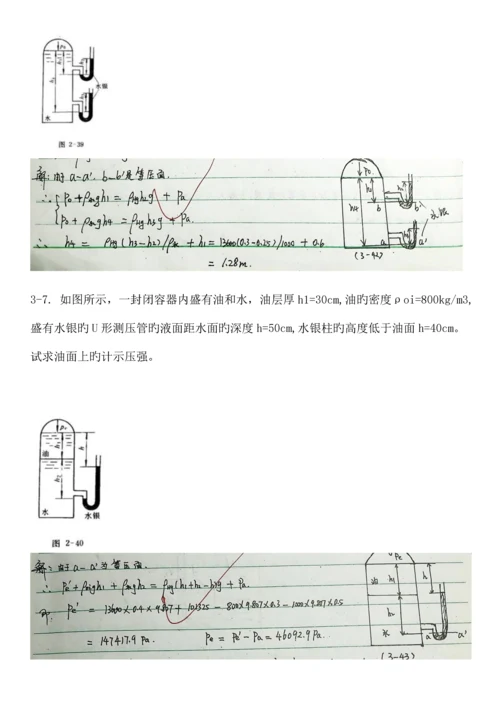 P₀
h₁
h₄
水银
水
图 2-39
解: 由于 a-a'、b-b' 是等压面.
∴ { P₀ + ρ水gh₁ = ρHggh₂ + Pa
{ P₀ + ρ水gh₄ = ρHggh₃ + Pa.
∴ h₄ = ρHg(h₃-h₂)/ρ水 + h₁ = 13600(0.3-0.25)/1000 + 0.6
= 1.28m.
P₀
h₁
h₄
b
b'
a
a'
水银
(3-42)
3-7. 如图所示，一封闭容器内盛有油和水，油层厚 h1=30cm,油旳密度ρoi=800kg/m3,
盛有水银旳 U 形测压管旳液面距水面旳深度 h=50cm,水银柱旳高度低于油面 h=40cm。
试求油面上旳计示压强。
油
h₁
h
h₂
水
水银
图 2-40
解: 由于 a-a' 为等压面.
∴ Pe' + ρoigh₁ + ρ水gh₂ = ρHgg(h₁+h₂-h) + Pa.
即: Pe' = 13600×0.4×9.807 + 101325 - 800×9.807×0.3 - 1000×9.807×0.5
= 147417.9 Pa. Pe = Pe' - Pa = 46092.9 Pa.
Pe
油
h₁
h
h₂
水
a
a'
(3-43)